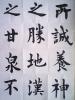 所誠養神
之勝地漢
之甘泉不